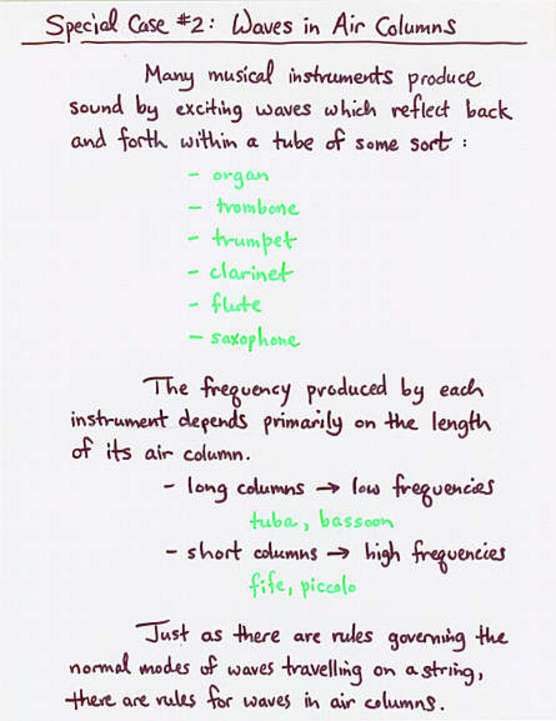 Special Case #2: Waves in Air Columns
Many musical instruments produce
sound by exciting waves which reflect back
and forth within a tube of some sort :
- organ
- trombone
- trumpet
- clarinet
- flute
- saxophone
The frequency produced by each
instrument depends primarily on the length
of its air column.
- long columns → low frequencies
tuba, bassoon
- short columns → high frequencies
fife, piccolo
Just as there are rules governing the
normal modes of waves travelling on a string,
there are rules for waves in air columns.